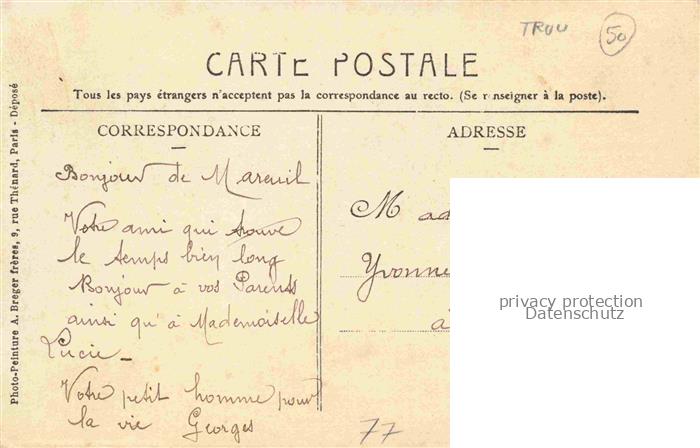 TROU
50
CARTE POSTALE
Tous les pays étrangers n'acceptent pas la correspondance au recto. (Se renseigner à la poste).
CORRESPONDANCE
ADRESSE
Photo-Peinture A. Breger frères, 9, rue Thénard, Paris - Déposé
Bonjour de Mareuil
Votre ami qui trouve
le temps bien long
Bonjour à vos Parents
ainsi qu'à Mademoiselle
Lucie -
Votre petit homme pour
la vie Georges
Mad
Yvonne
à
77
privacy protection
Datenschutz